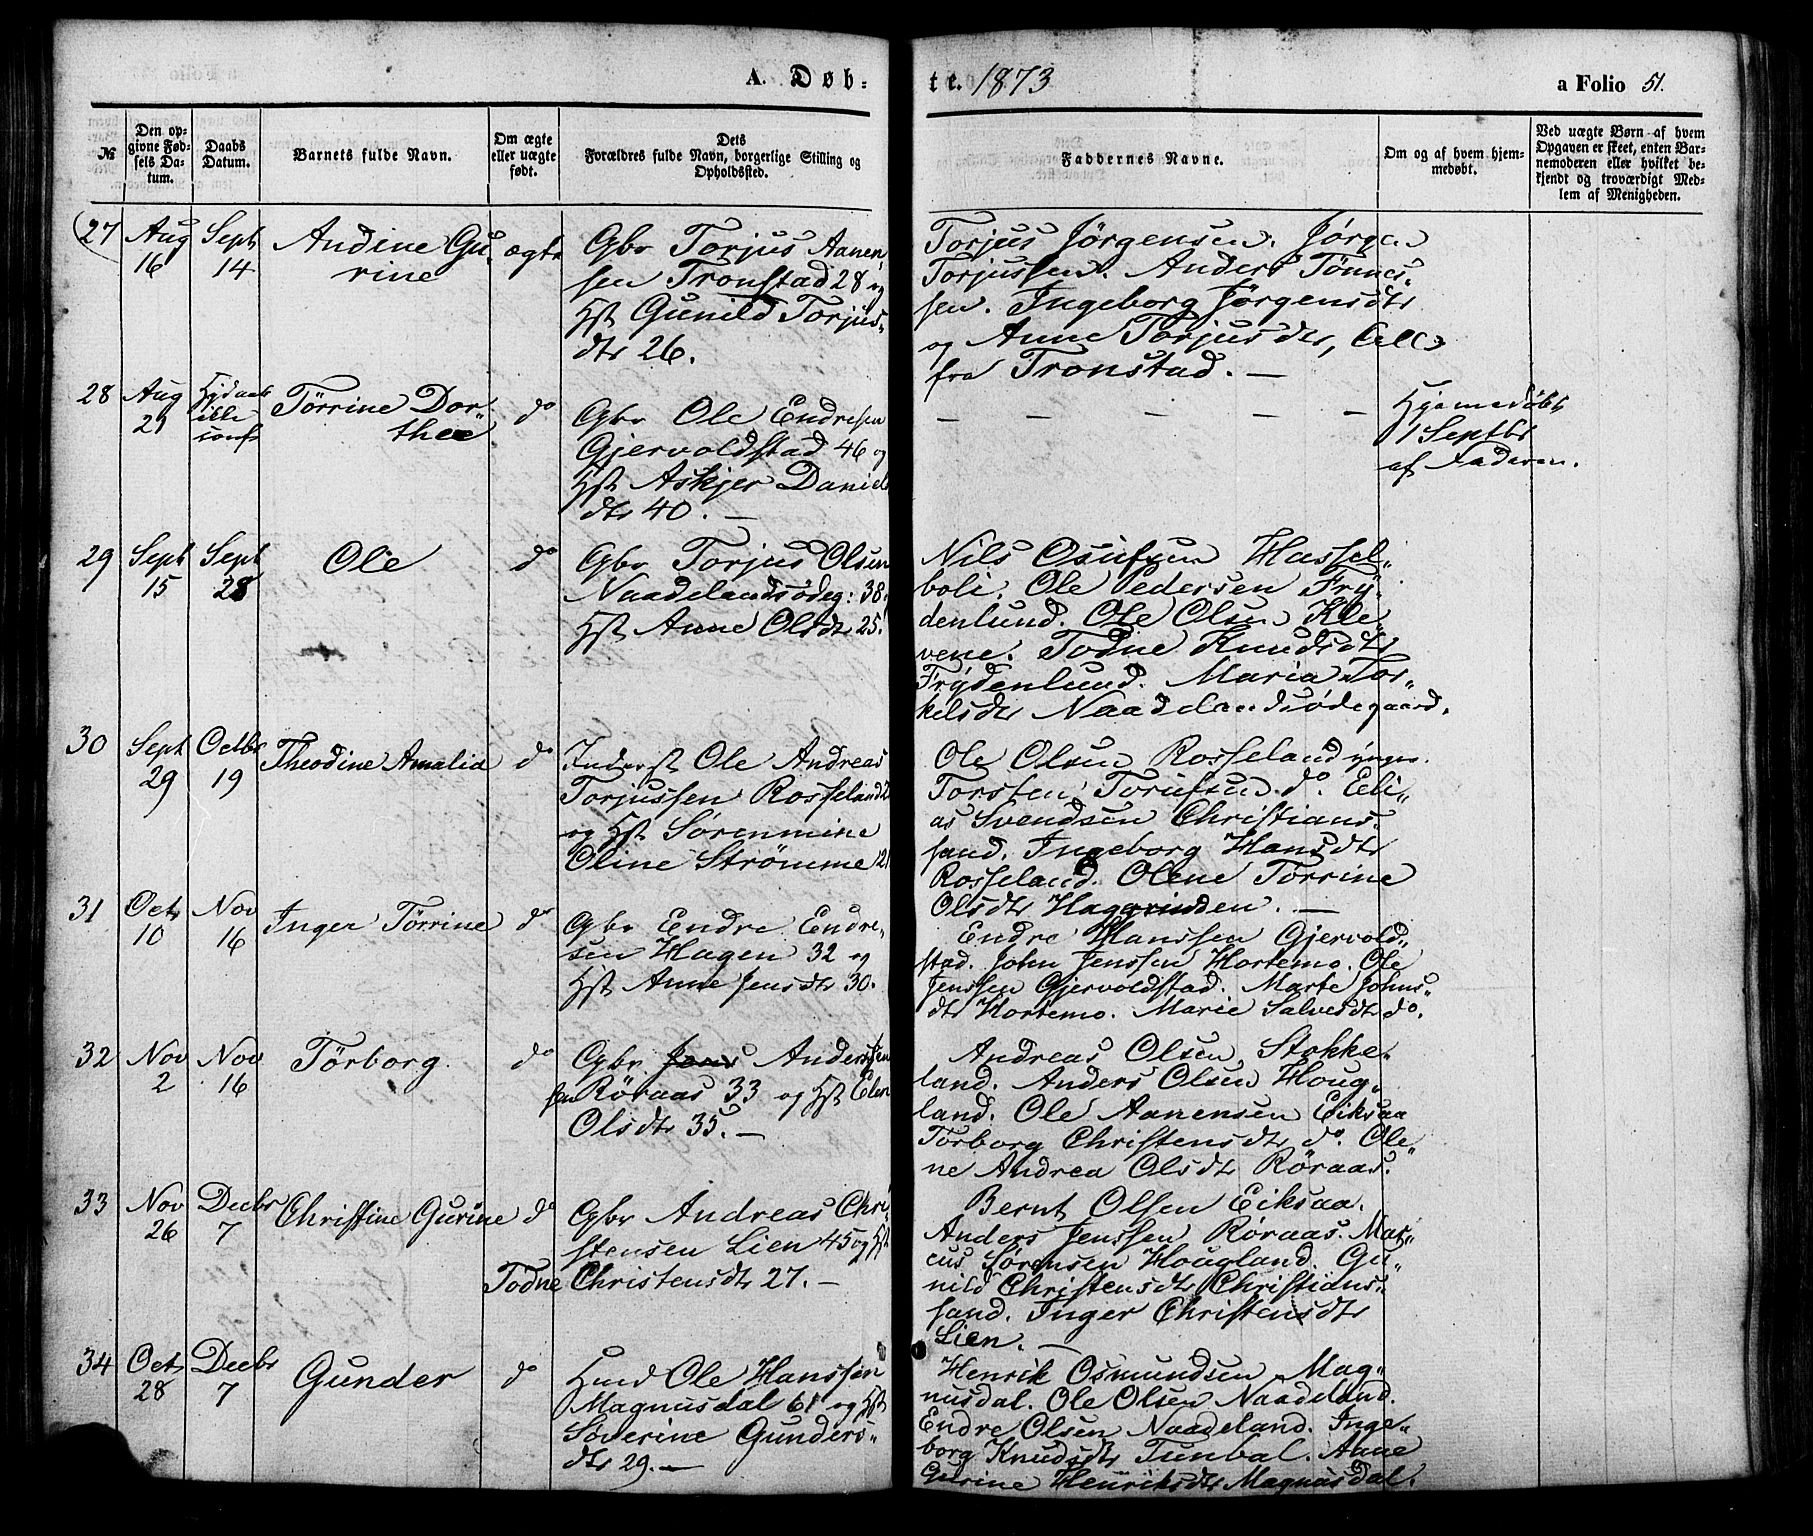 A. Døb-
te. 1873
a Folio 51.
№
Den op-
givne Fød-
sels Da-
tum.
Daabs
Datum.
Barnets fulde Navn.
Om ægte
eller uægte
født.
Dets
Forældres fulde Navn, borgerlige Stilling og
Opholdssted.
Faddernes Navne.
Om og af hvem hjem-
medøbt.
Ved uægte Børn af hvem
Opgaven er skeet, enten Bar-
nemoderen eller hvilket be-
kjendt og troværdigt Med-
lem af Menigheden.
27
Aug
16
Sept
14
Andine Gu-
rine
ægte
Gbr Torjus Aanen-
sen Tronstad 28 og
Hst Gunild Torjus-
dtr 26.
Torjus Jörgensen. Jörgen
Torjussen. Anders Tönnes-
sen. Ingeborg Jörgensdtr
og Anne Torjusdtr, Alle
fra Tronstad. —
28
Aug
29
ikke
Törrine Dor-
thee
do
Gbr Ole Endresen
Gjervoldstad 46 og
Hst Askjer Daniels
dtr 40. —
— — — — —
Hjemmedöbt
1 Septbr
af Faderen.
29
Sept
15
Sept
28
Ole
do
Gbr Torjus Olsen
Naadelandsödeg: 38.
Hst Anne Olsdtr 25.
Nils Osufsen Hassel-
boli. Ole Pedersen Frÿ-
denlund. Ole Olsen Kle-
vene. Todne Knudsdtr
Frÿdenlund. Maria Tor-
kelsdtr Naadelandsödegaard.
30
Sept
29
Octbr
19
Theodine Amalia
do
Inderst Ole Andreas
Torjussen Rosseland
og Hst Sörenmine
Oline Strömme 21
Ole Olsen Rosseland yngre.
Torsten Torjussen do. Eli-
as Svendsen Christians-
sand. Ingeborg Hansdtr
Rosseland. Olene Törrine
Olsdtr Haggrinden. —
31
Octr
10
Nov
16
Inger Törrine
do
Gbr Endre Endre-
sen Hagen 32 og
Hst Anne Jensdtr 30.
Endre Hanssen Gjervold-
stad. John Jenssen Hortemo. Ole
Jenssen Gjervoldstad. Marte Johns-
dtr Hortemo. Marie Salvesdtr do.
32
Nov
2
Nov
16
Törborg
do
Gbr Jens Anders
sen Röraas 33 og Hst Elen
Olsdtr 35. —
Andreas Olsen Stokke-
land. Anders Olsen Houg-
land. Ole Aanensen Eiksaa
Törborg Christensdtr do. Ole-
ne Andrea Olsdtr Röraas.
33
Nov
26
Decbr
7
Christine Gurine
do
Gbr Andreas Chri-
stensen Lien 45 og Hst
Todne Christensdtr 27. —
Bernt Olsen Eiksaa.
Anders Jenssen Röraas. Mar-
cus Sörensen Hougland. Gu-
nild Christensdtr Christians-
sand. Inger Christensdtr
Lien. —
34
Oct
28
Decbr
7
Gunder
do
Hmd Ole Hanssen
Magnusdal 61 og Hst
Severine Gunders-
dtr 29. —
Henrik Osmundsen Mag-
nusdal. Ole Olsen Naadeland.
Endre Olsen Naadeland. Inge-
borg Knudsdtr Tunbal. Anne
Gurine Henriksdtr Magnusdal.